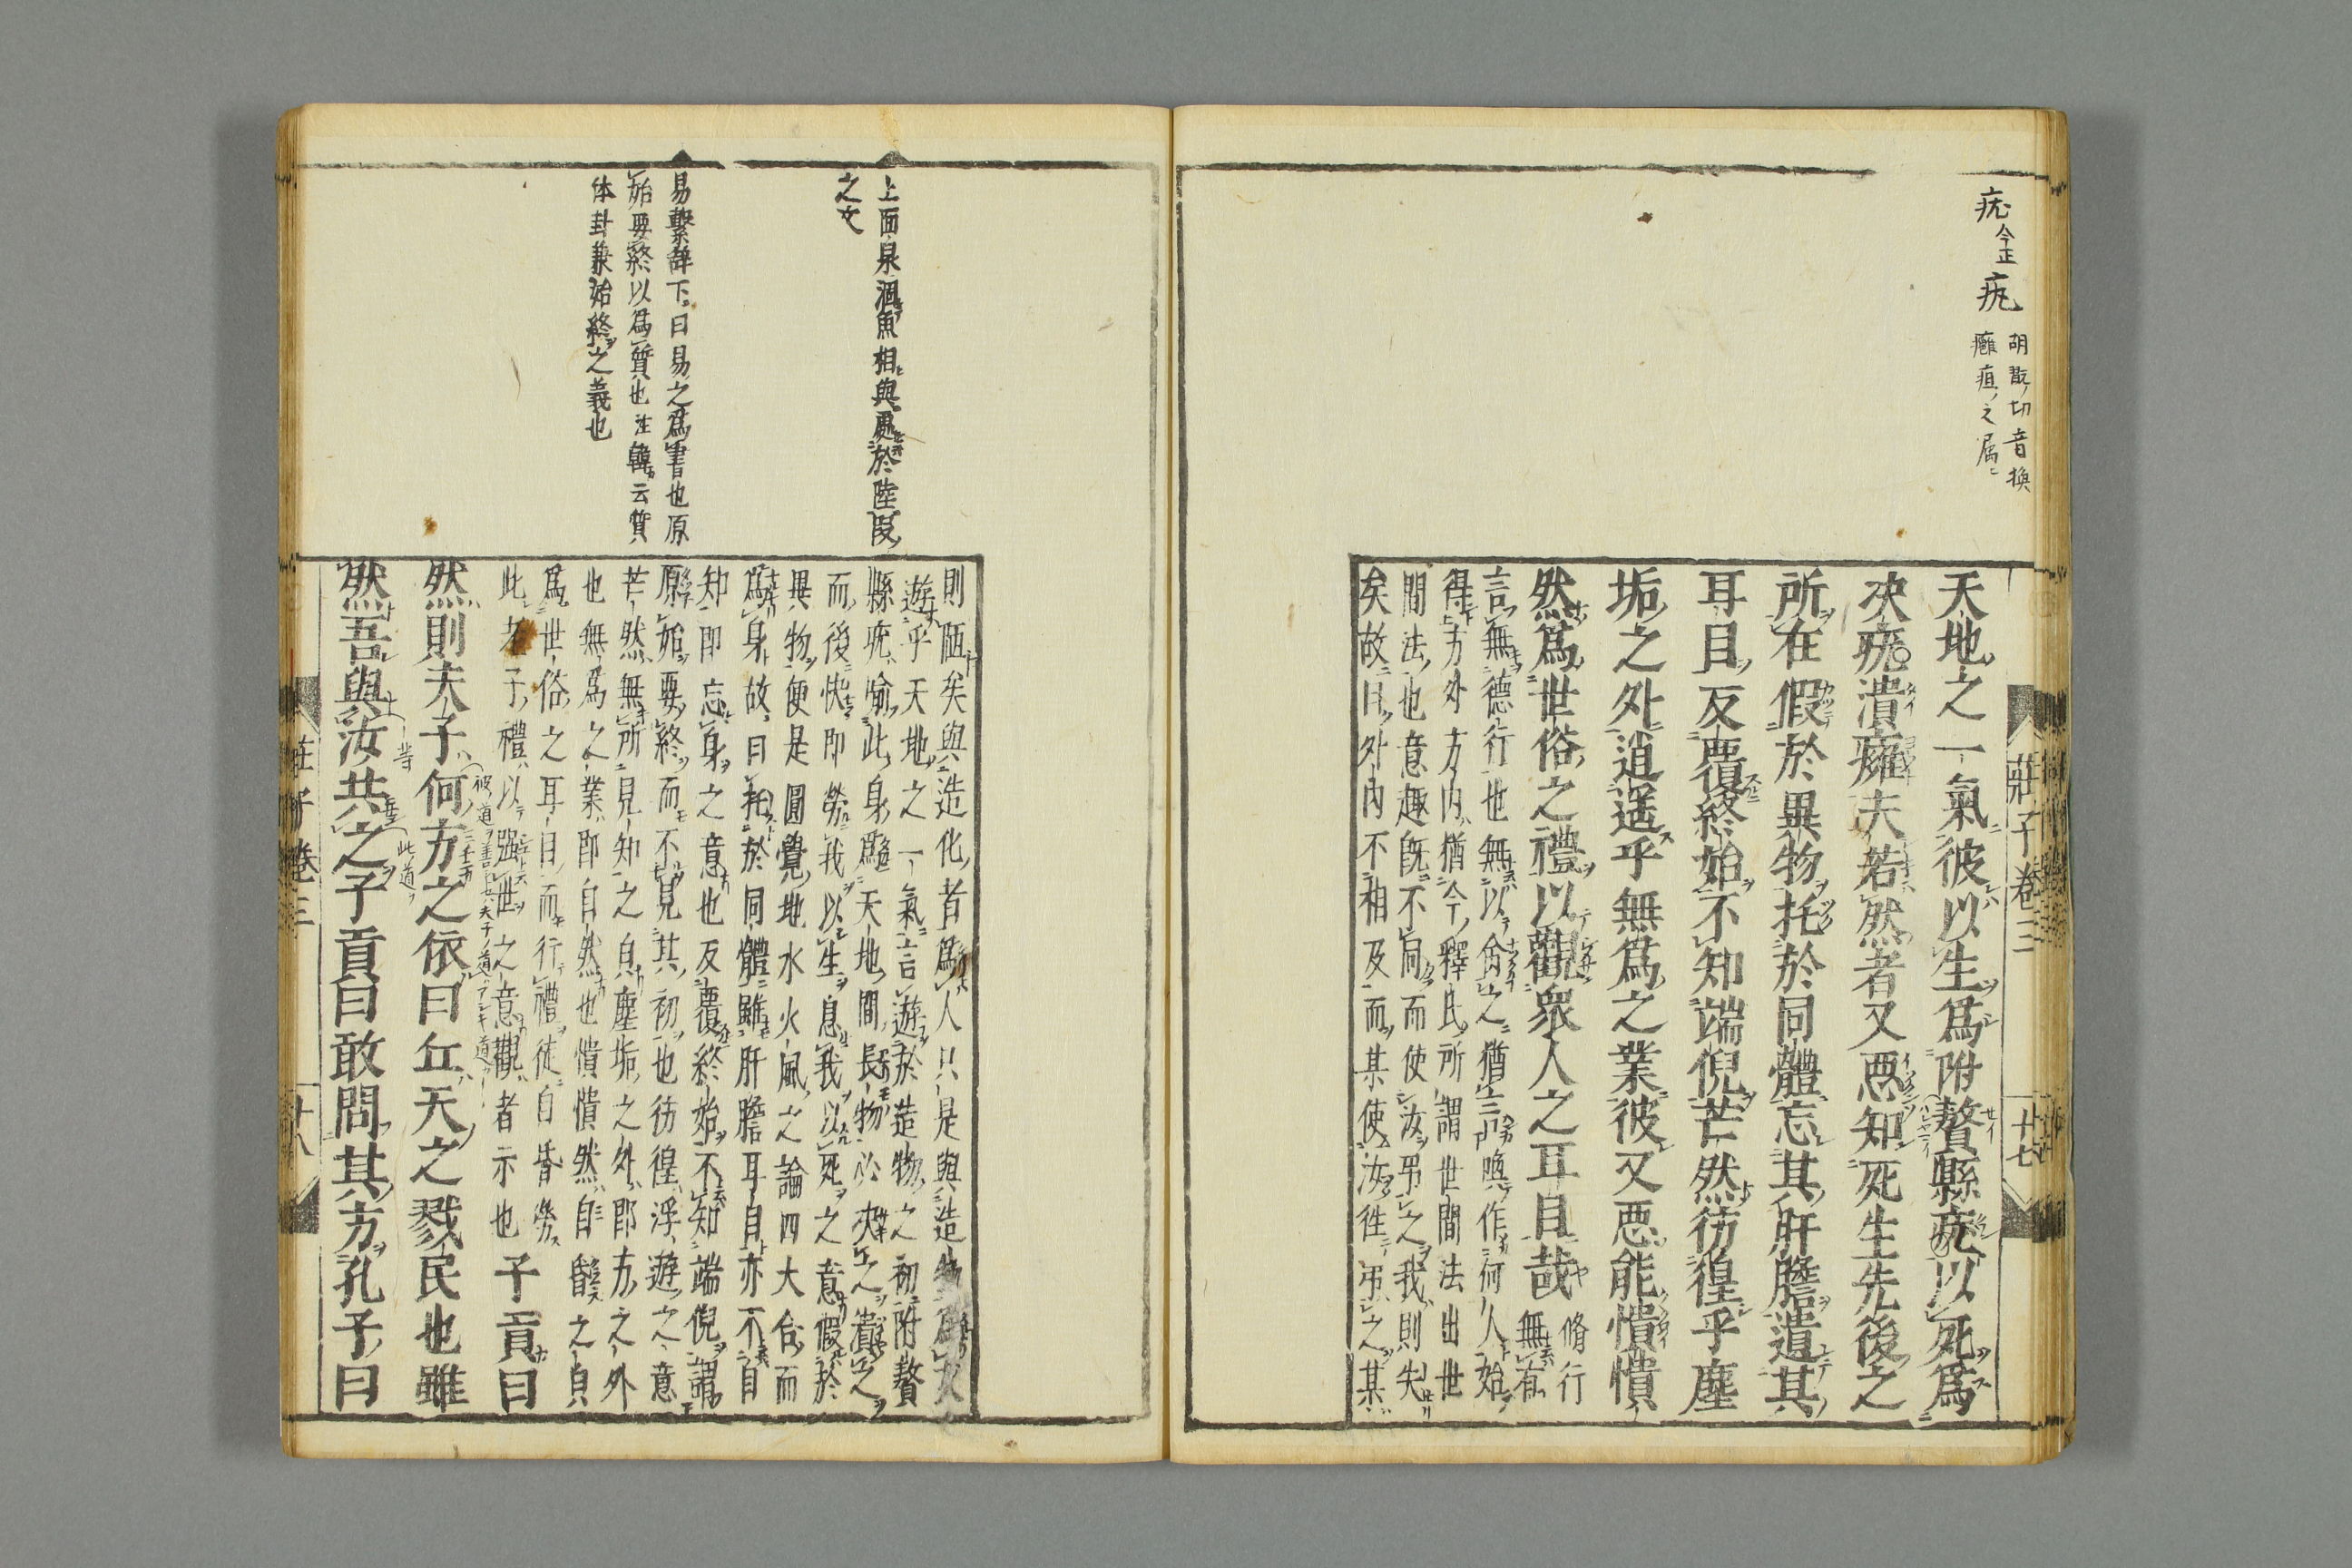 疣今正疣
胡亂切音換
癰疽之属
天地之一氣彼以生爲附贅縣疣以死爲
决疣潰癰夫若然者又惡知死生先後之
所在假於異物托於同體忘其肝膽遺其
耳目反覆終始不知端倪芒然彷徨乎塵
垢之外逍遥乎無爲之業彼又惡能憒憒
然爲世俗之禮以觀衆人之耳目哉
脩行
無有
言無德行也無以命之猶言喚作何人始
得方外方内猶今釋氏所謂世間法出世
間法也意趣既不同而使汝吊之我則失
矣故曰外内不相及而某使汝徃吊之某
莊子巻三
十七
上面泉涸魚相與處於陸段
之文
易繫辞下曰易之爲書也原
始要終以爲質也注韓云質
体卦兼始終之義也
則陋矣與造化者爲人只是與造物爲友
遊乎天地之一氣言遊於造物之初附贅
縣疣喻此身爲天地間長物必决之潰之
而後快即勞我以生息我以死之意假於
異物便是圓覺地水火風之論四大合而
爲身故曰托於同體雖肝膽耳目亦不自
知即忘身之意也反覆終始不知端倪謂
原始要終而不見其初也彷徨浮遊之意
芒然無所見知之皃塵垢之外即方之外
也無爲之業即自然也憒憒然自昏之皃
爲世俗之耳目而行禮徒自昏勞
此老子禮以强世之意觀者示也子貢曰
然則夫子何方之依曰丘天之戮民也雖
然吾與汝共之子貢曰敢問其方孔子曰
莊子巻三
十八